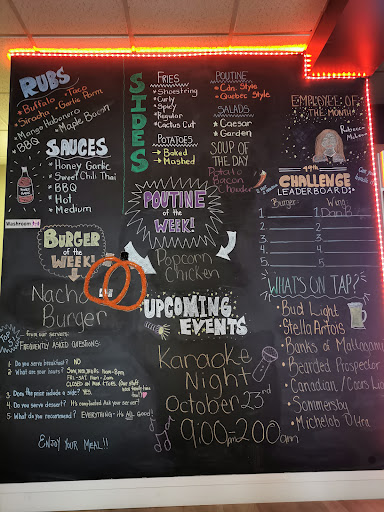 RUBS
• Buffalo • Taco
Siracha • Garlic Parm
• Mango Habanero
• BBQ • Maple Bacon
SAUCES
• Honey Garlic
• Sweet Chili Thai
• BBQ
• Hot
• Medium
Washroom
BURGER
of the
WEEK!
Nacho
Burger
TOP 5
from our servers:
FREQUENTLY ASKED QUESTIONS:
1- Do you serve breakfast? NO
2- What are your hours?
FRI-SAT
CLOSED ON
3- Does the price include a side? YES.
4- Do you serve dessert? It's complicated. Ask your server!
5- What do you recommend? EVERYTHING - it's ALL Good!
ENJOY YOUR MEAL!!
SIDES
FRIES
• Shoestring
• Curly
• Spicy
• Regular
• Cactus Cut
POTATOES
• Baked
• Mashed
POUTINE
• Cdn. Style
• Quebec Style
SALADS
• Caesar
• Garden
SOUP OF
THE DAY
Potato
Bacon
Chowder
POUTINE
of the
WEEK!
Popcorn
Chicken
UPCOMING
EVENTS
Karaoke
Night
October 23rd
9:00pm-2:00am
EMPLOYEE OF
THE MONTH
Rebecca
CHALLENGE
LEADERBOARD:
Burger Wing
1
2
3
4
5
WHAT'S ON TAP?
• Bud Light
• Stella Artois
• Banks of Mattagami
• Bearded Prospector
• Canadian / Coors
• Sommersby
• Michelob Ultra